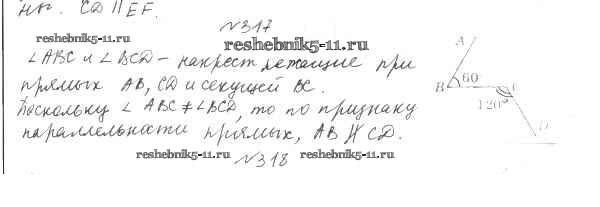 нк. CD || EF.
№317
reshebnik5-11.ru
reshebnik5-11.ru
∠ABC и ∠BCD – накрест лежащие при
прямых AB, CD и секущей BC.
reshebnik5-11.ru
Поскольку ∠ABC ≠ ∠BCD, то по признаку
параллельности прямых, AB ∦ CD.
A
B 60° C
120°
D
reshebnik5-11.ru №318 reshebnik5-11.ru